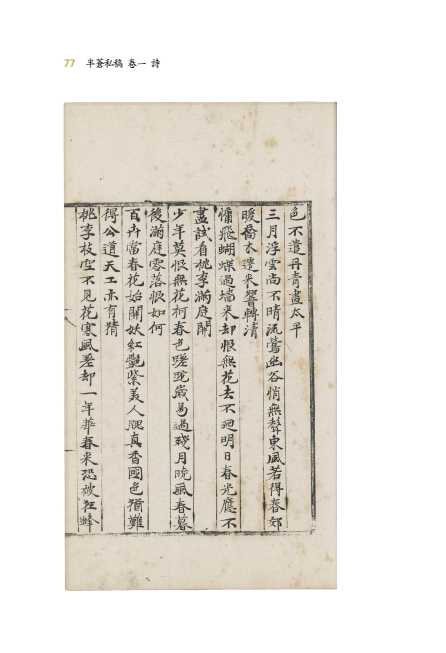 77 半蒼私稿 卷一 詩
色不遣丹青畫太平
三月浮雲尚不晴流鶯幽谷悄無聲東風若得春郊
暖喬木遷來響轉清
慵飛蝴蝶過墻來却恨無花去不廻明日春光應不
盡試看桃李滿庭開
少年莫恨無花柯春色蹉跎歲易過殘月晩風春暮
後滿庭零落恨如何
百卉當春花始開妖紅艶紫美人腮真香國色猶難
得公道天工亦有猜
桃李枝空不見花寒風差却一年華春來恐被狂蜂